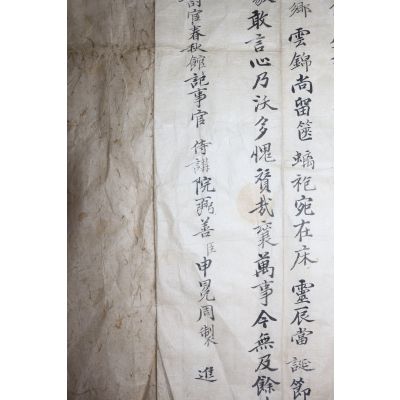 鄉雲錦尚留篋螭袍宛在床靈辰當誕節
敢言心乃沃多愧賛哉襄萬事今無及餘
官春秋館記事官 侍講院弼善臣申冕周製 進